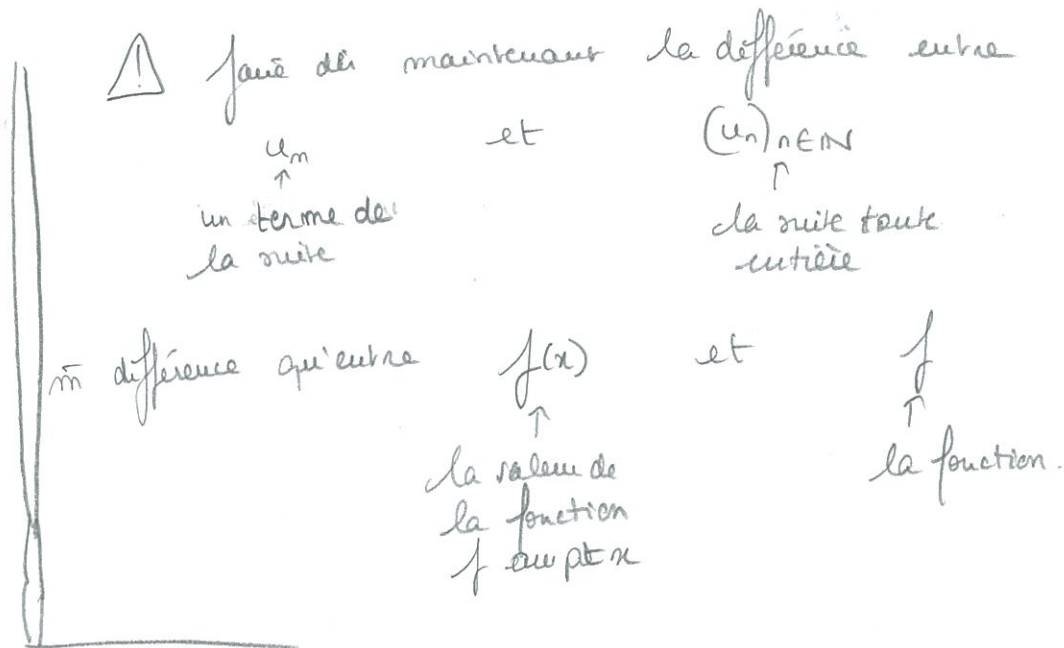 ⚠ faire dès maintenant la différence entre
u_n et (u_n)_{n∈ℕ}
↑ ↑
un terme de la suite toute
la suite entière
m̄ différence qu'entre f(x) et f
↑ ↑
la valeur de la fonction.
la fonction
f au pt x